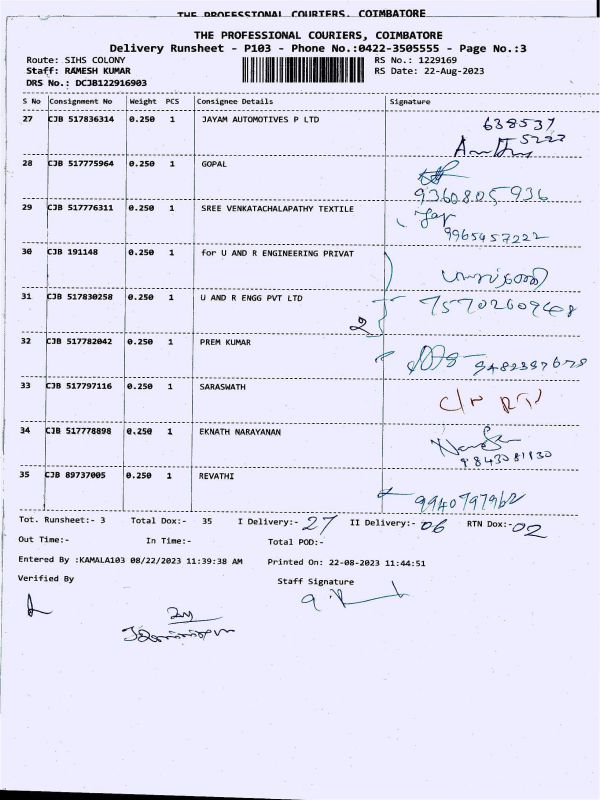 THE PROFESSIONAL COURIERS, COIMBATORE
THE PROFESSIONAL COURIERS, COIMBATORE
Delivery Runsheet - P103 - Phone No.:0422-3505555 - Page No.:3
Route: SIHS COLONY RS No.: 1229169
Staff: RAMESH KUMAR RS Date: 22-Aug-2023
DRS No.: DCJB122916903
S No Consignment No Weight PCS Consignee Details Signature
27 CJB 517836314 0.250 1 JAYAM AUTOMOTIVES P LTD 638537
5222
28 CJB 517775964 0.250 1 GOPAL
9360805936
29 CJB 517776311 0.250 1 SREE VENKATACHALAPATHY TEXTILE
9965457222
30 CJB 191148 0.250 1 for U AND R ENGINEERING PRIVAT
31 CJB 517830258 0.250 1 U AND R ENGG PVT LTD
2
32 CJB 517782042 0.250 1 PREM KUMAR
33 CJB 517797116 0.250 1 SARASWATH
34 CJB 517778898 0.250 1 EKNATH NARAYANAN
9843081130
35 CJB 89737005 0.250 1 REVATHI
9940797962
Tot. Runsheet:- 3 Total Dox:- 35 I Delivery:- 27 II Delivery:- 06 RTN Dox:- 02
Out Time:- In Time:- Total POD:-
Entered By :KAMALA103 08/22/2023 11:39:38 AM Printed On: 22-08-2023 11:44:51
Verified By Staff Signature